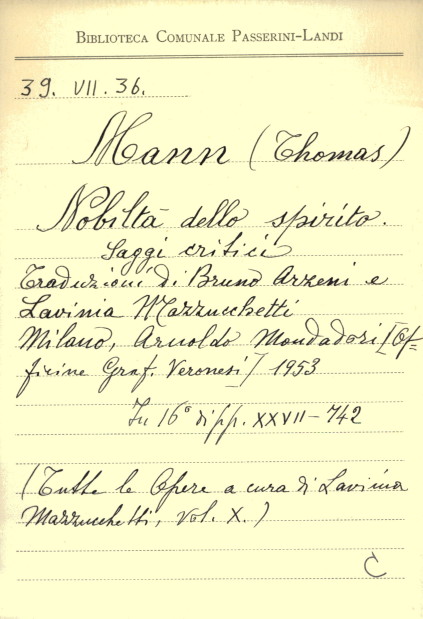 BIBLIOTECA COMUNALE PASSERINI-LANDI
39. VII. 36.
Mann (Thomas)
Nobiltà dello spirito.
Saggi critici
Traduzioni di Bruno Arzeni e
Lavinia Mazzucchetti
Milano, Arnoldo Mondadori [Of-
ficine Graf. Veronesi] 1953
In 16° di pp. XXVII-742
(Tutte le Opere a cura di Lavinia
Mazzucchetti, vol. X.)
C